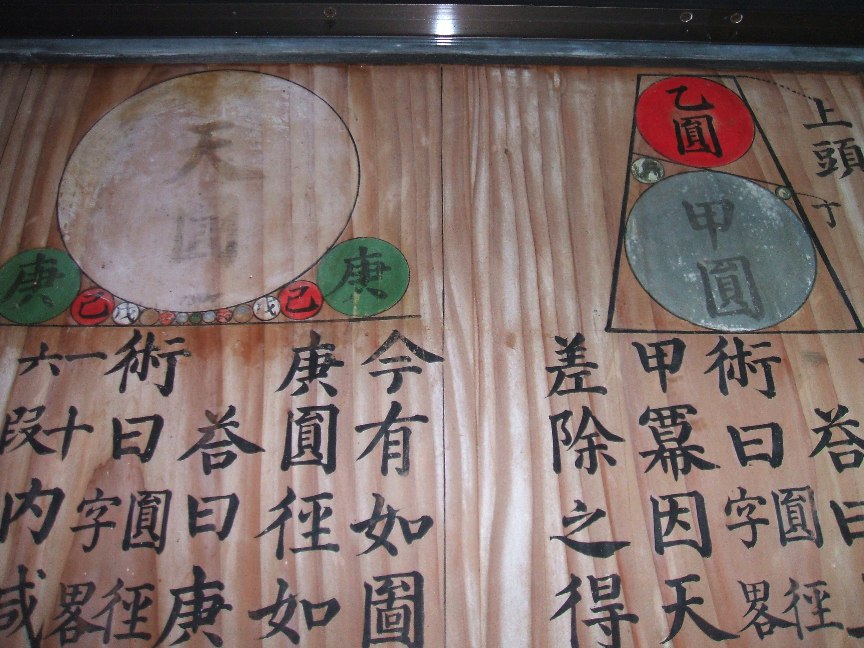 上頭
丁
乙圓
甲圓
荅曰
術曰圓徑字畧
甲冪因天
差除之得
天圓
庚
己
戊
戊
己
庚
今有如圖
庚圓徑如
荅曰庚
術曰圓徑字畧
一十六段内